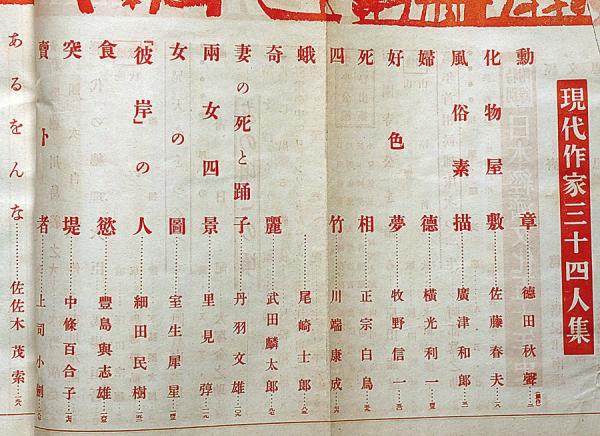 現代作家三十四人集
勳章……德田秋聲
化物屋敷……佐藤春夫
風俗素描……廣津和郎
婦德……横光利一
好色夢……牧野信一
死相……正宗白鳥
四竹……川端康成
蛾……尾崎士郎
奇麗……武田麟太郎
妻の死と踊子……丹羽文雄
兩女四景……里見弴
女の圖……室生犀星
「彼岸」の人……細田民樹
食慾……豐島與志雄
突堤……中條百合子
賣卜者……上司小劍
あるをんな……佐佐木茂索